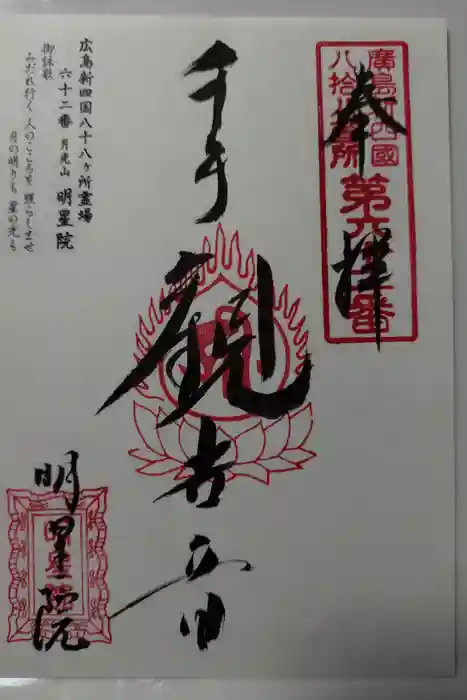 奉拝
廣島新四國
八拾八ヶ所
第六十二番
千手観世音
明星院
広島新四国八十八ヶ所霊場
六十二番 月光山 明星院
御詠歌
みだれ行く 人のこころを 照らしませ
月の明りも 星の光も